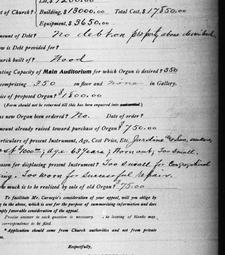 of Church? Building, $13000.00 Total Cost, $17850.00
Equipment, $3650.00
mount of Debt? No debt on property above described
ow is Debt provided for?
hurch built of? Wood
ating Capacity of Main Auditorium for which Organ is desired? 350
comprising 350 on floor and none in Gallery.
ice of proposed Organ? $1800.00
(Form should not to be returned till this has been inquired into
as new Organ been ordered? No. Date of order?
mount already raised toward purchase of Organ? $750.00
articulars of present Instrument, Age, Cost Price, Etc. Jardine
Age 63 years; Worn out, Too small.
eason for displacing present Instrument? Too small for Congregational
singing. Too worn for successful repair.
ow much is to be realized by sale of old Organ? 75.00
To facilitate Mr. Carnegie's consideration of your appeal, will you oblige by
ng in the above, which is sent for the purpose of summarizing information and does
imply favorable consideration of the appeal.
Precise answer to each question is necessary. In leaving of blanks may
correspondence to be filed.
* Application should come from Church authorities and not from private
Respectfully,